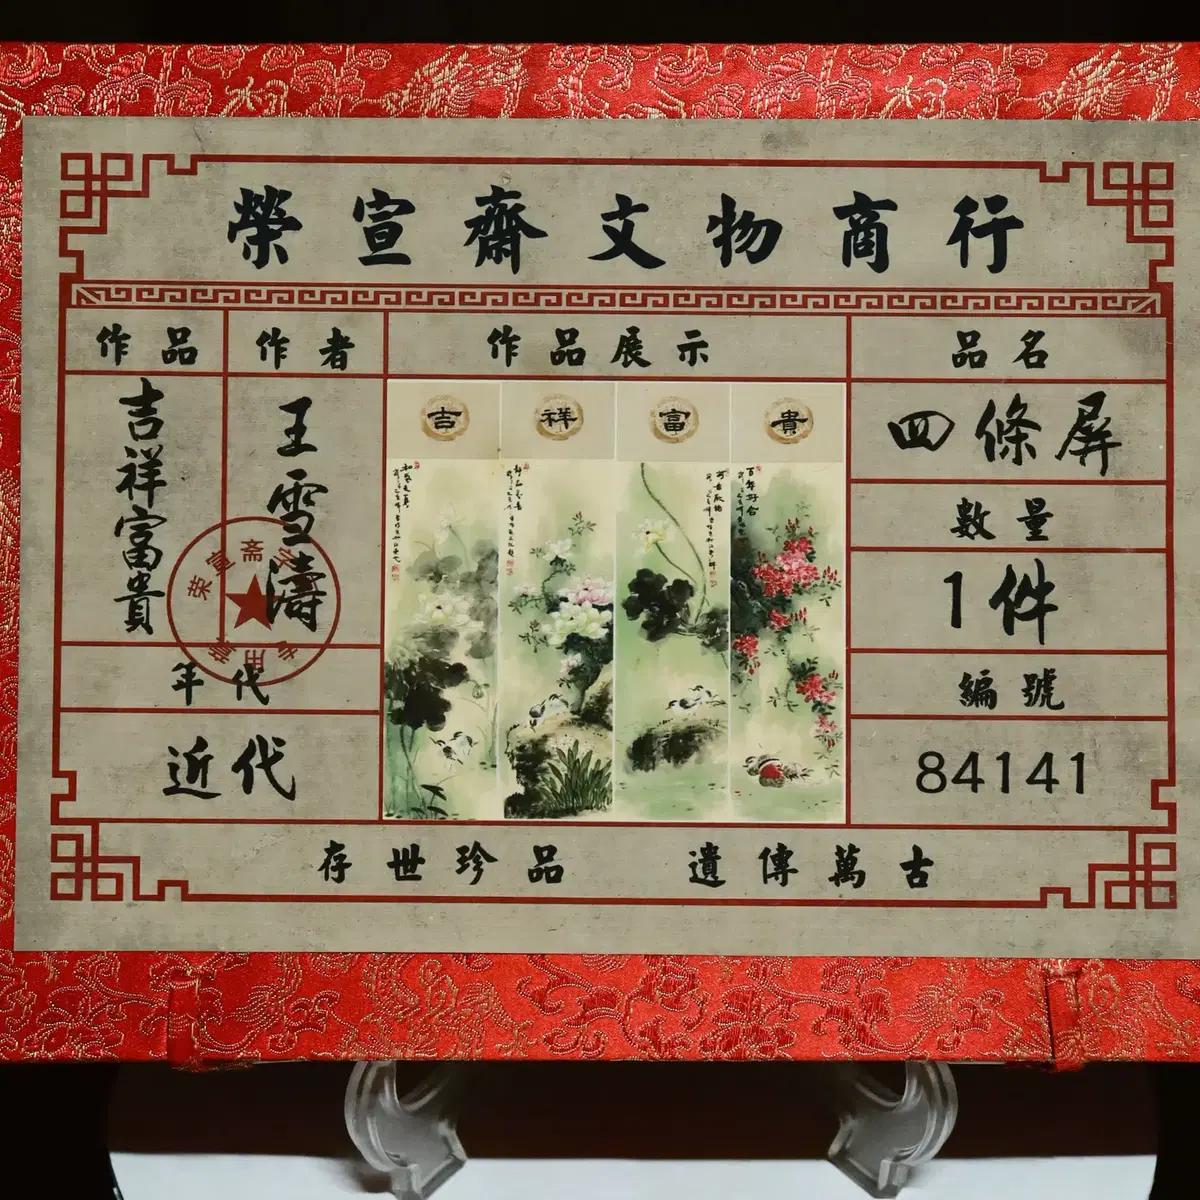 榮宣齋文物商行
作品
作者
作品展示
品名
吉祥富貴
王雪濤
吉
祥
富
貴
百年好合
四條屏
數量
1件
編號
84141
荣宣斋
年代
近代
存世珍品 遺傳萬古